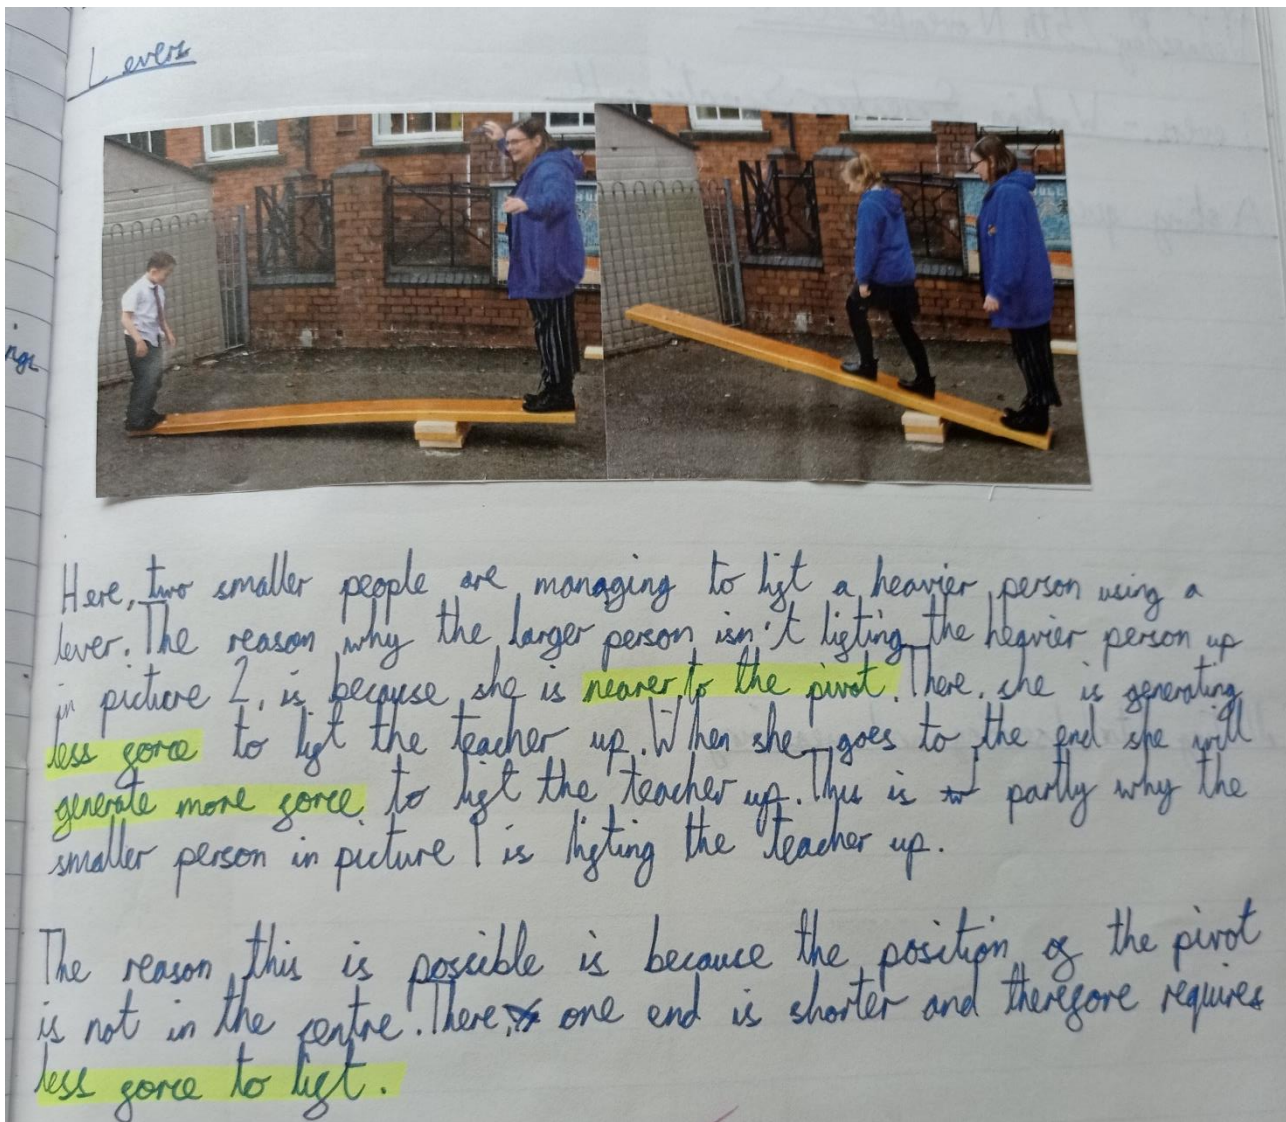 Levers
Here, two smaller people are managing to lift a heavier person using a
lever. The reason why the larger person isn't lifting the heavier person up
in picture 2, is because she is nearer to the pivot. There, she is generating
less force to lift the teacher up. When she goes to the end she will
generate more force to lift the teacher up. This is partly why the
smaller person in picture 1 is lifting the teacher up.
The reason this is possible is because the position of the pivot
is not in the centre. There, one end is shorter and therefore requires
less force to lift.